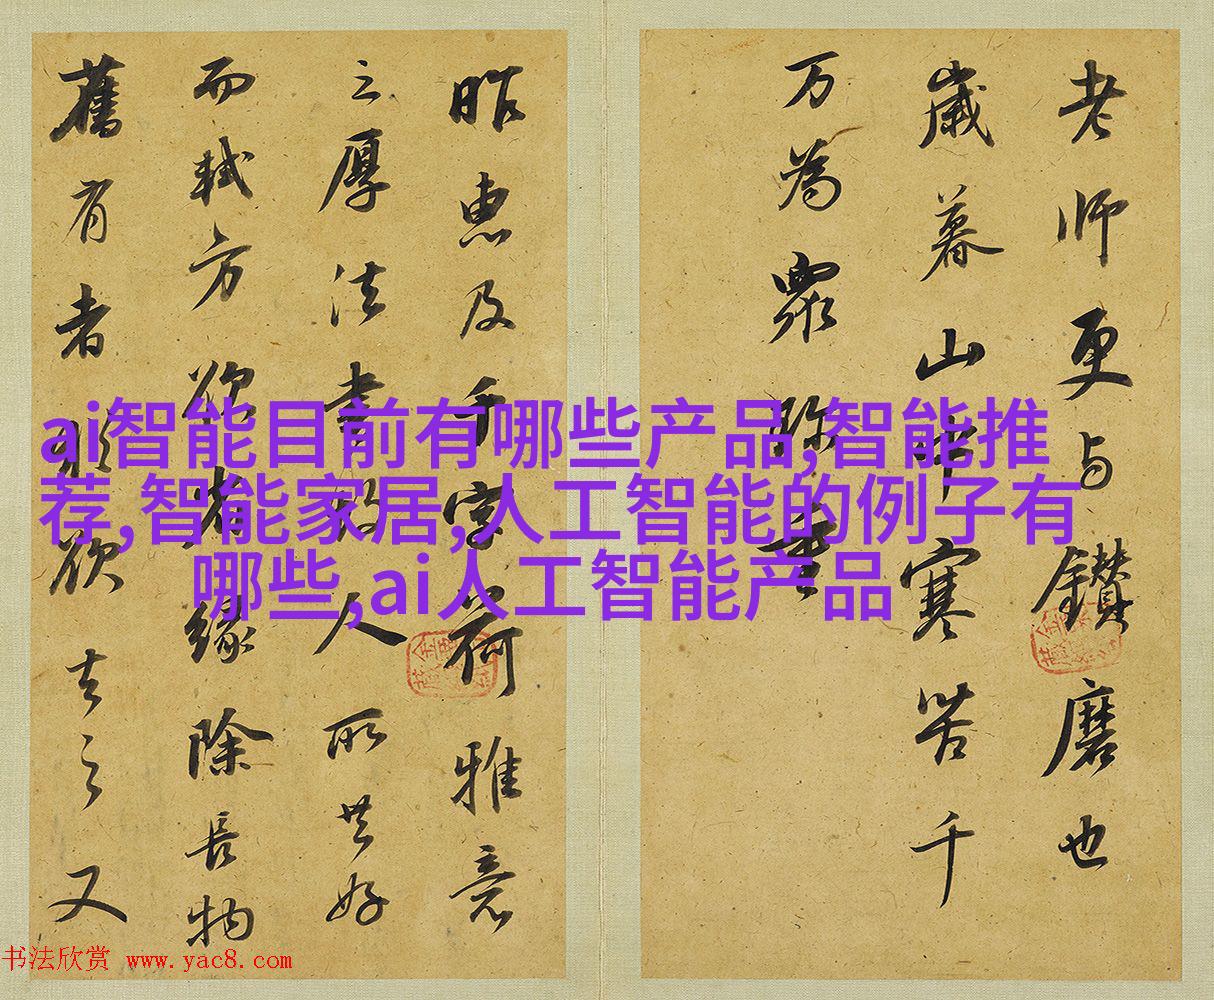 老師更与鑽磨也
歲暮山中寒苦千
万為眾珎重
昨惠及千字荷雅意
之厚法書固人所共好
而軾方欲省緣除長物
舊有者猶欲去之又
ai智能目前有哪些产品,智能推
荐,智能家居,人工智能的例子有
哪些,ai人工智能产品
书法欣赏 www.yac8.com